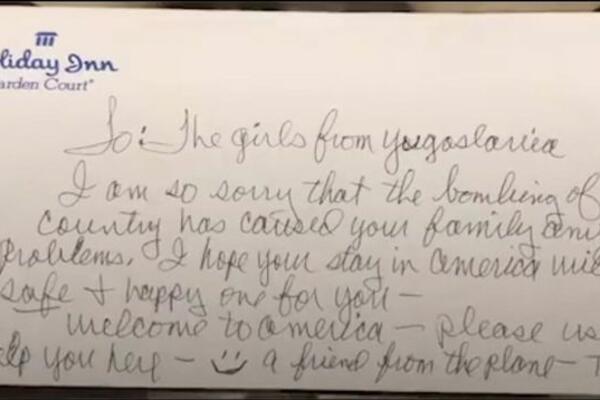 liday Inn
arden Court®
To: The girls from Yugoslavia
I am so sorry that the bombing of
country has caused your family any
problems. I hope your stay in america will
safe + happy one for you —
Welcome to america — please us
elp you here — a friend from the plane — T